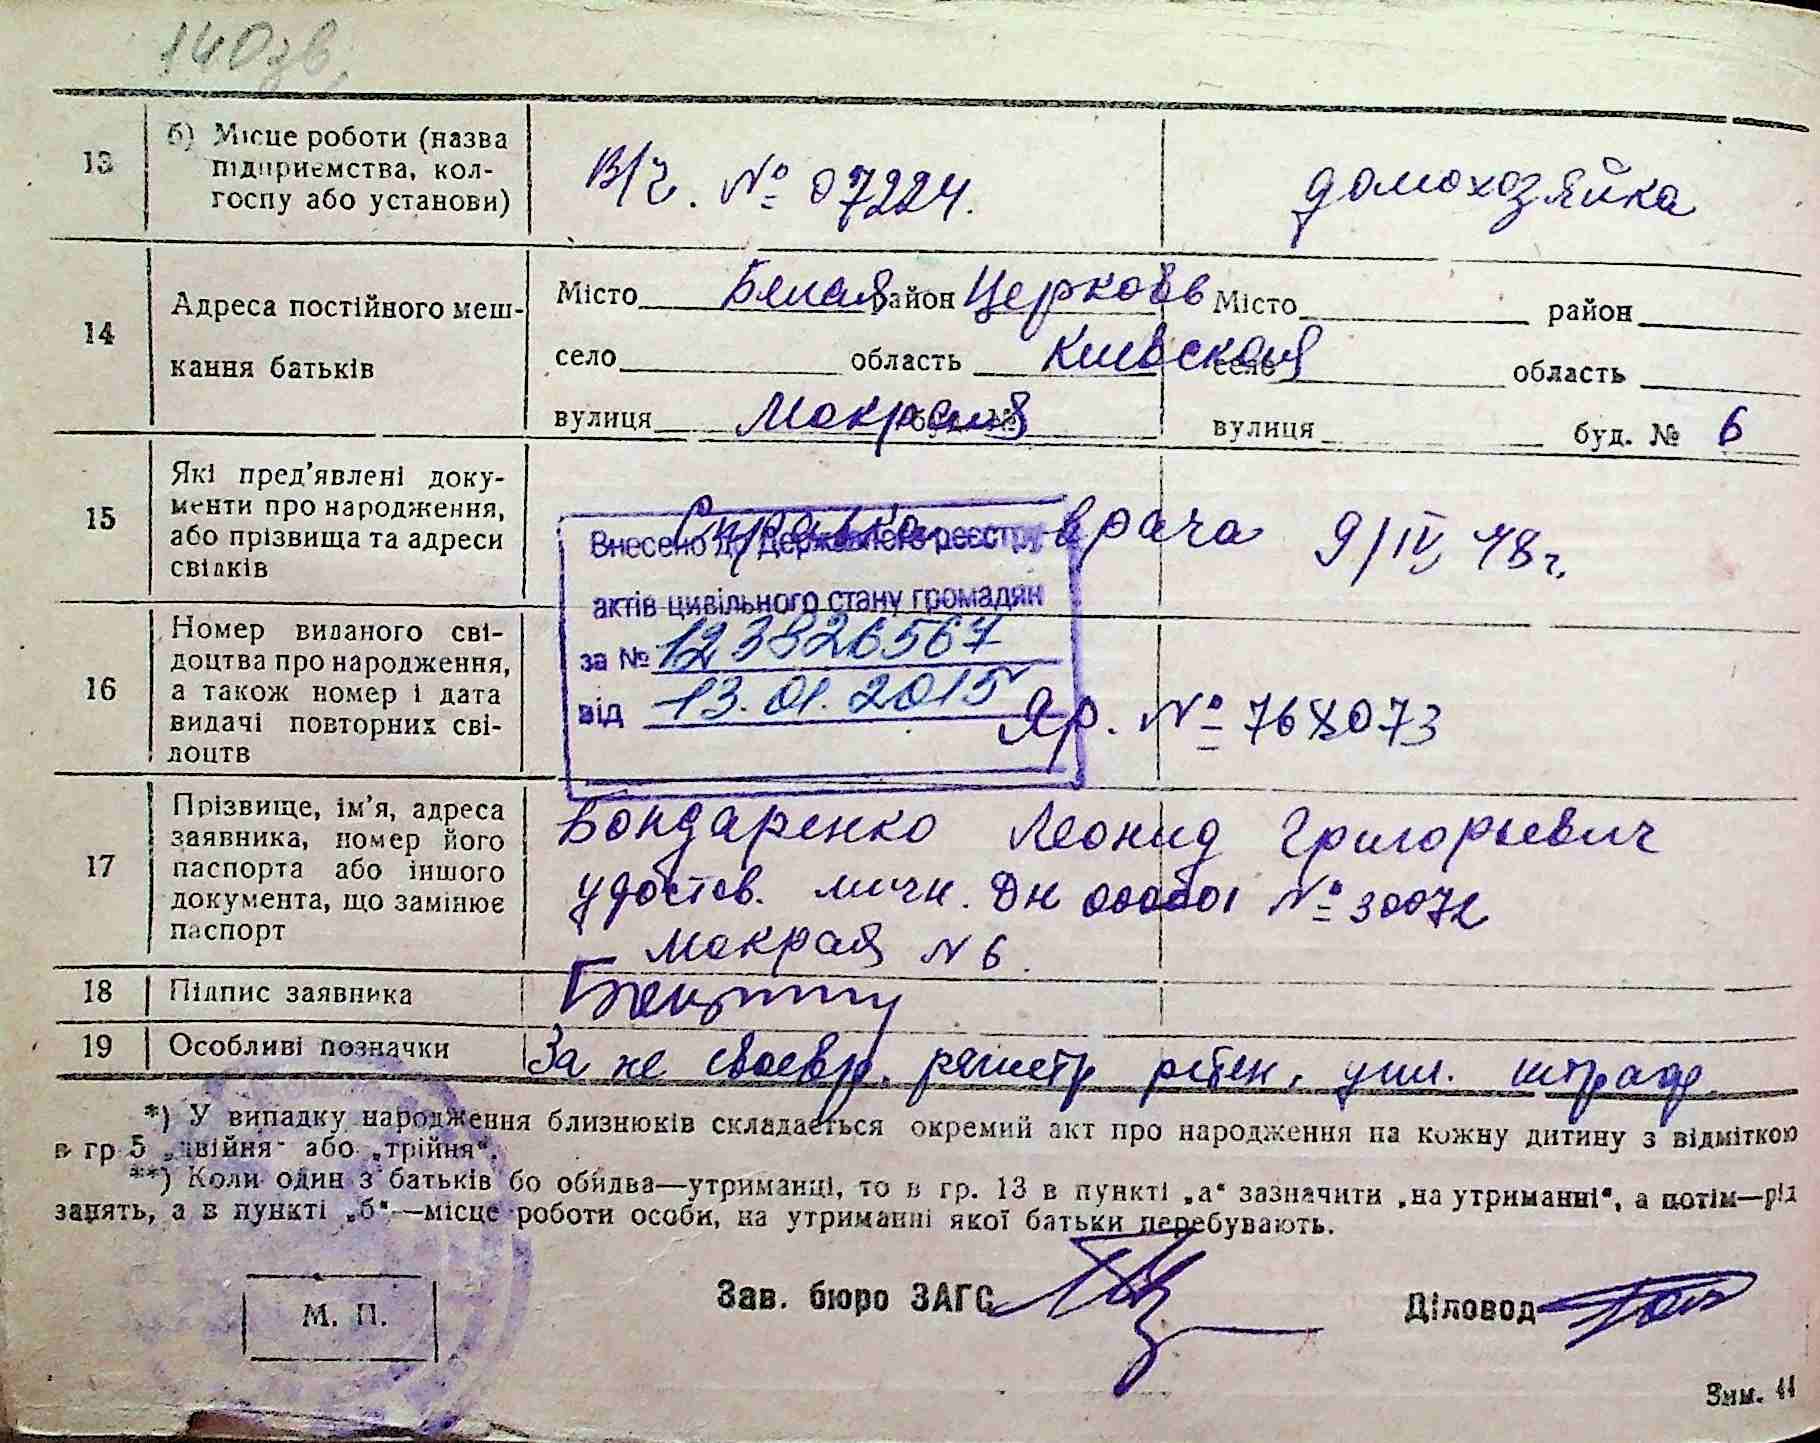 140зв.
13 б) Місце роботи (назва підприємства, колгоспу або установи)
В/ч. № 07224. домохозяйка
14 Адреса постійного мешкання батьків
Місто Белая район Церковь Місто район
село область Киевская село область
вулиця Мокрая буд. № вулиця буд. № 6
15 Які пред'явлені документи про народження, або прізвища та адреси свідків
Справка врача 9/IV 48 г.
Внесено до Державного реєстру
актів цивільного стану громадян
за № 1238826567
від 13.01.2015
16 Номер виданого свідоцтва про народження, а також номер і дата видачі повторних свідоцтв
Яр. № 768073
17 Прізвище, ім'я, адреса заявника, номер його паспорта або іншого документа, що замінює паспорт
Бондаренко Леонид Григорьевич
удостов. личн. №
Мокрая N 6.
18 Підпис заявника
19 Особливі позначки
За не своевр. регистр упл. штраф
*) У випадку народження близнюків складається окремий акт про народження на кожну дитину з відміткою
в гр 5 „двійня" або „трійня".
**) Коли один з батьків бо обидва—утриманці, то в гр. 13 в пункті „а" зазначити „на утриманні", а потім—рід
занять, а в пункті „б"—місце роботи особи, на утриманні якої батьки перебувають.
М. П.
Зав. бюро ЗАГС
Діловод